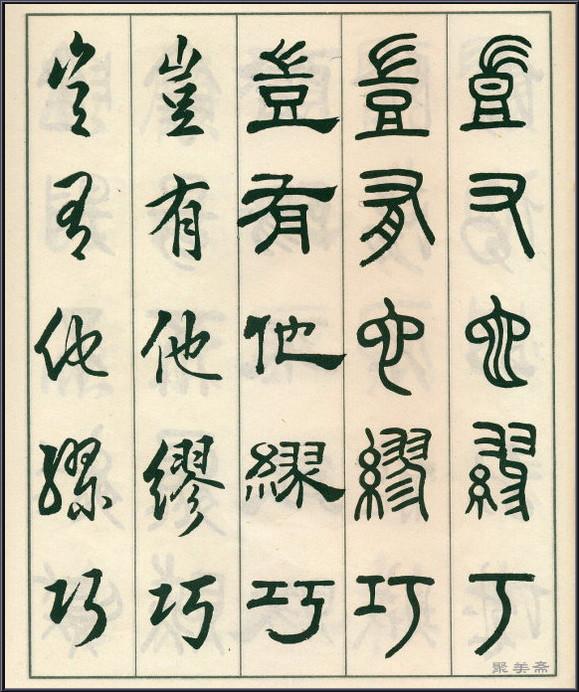 豈有他繆巧
豈有他繆巧
豈有他繆巧
豈有他繆巧
豈有他繆巧
聚美斋